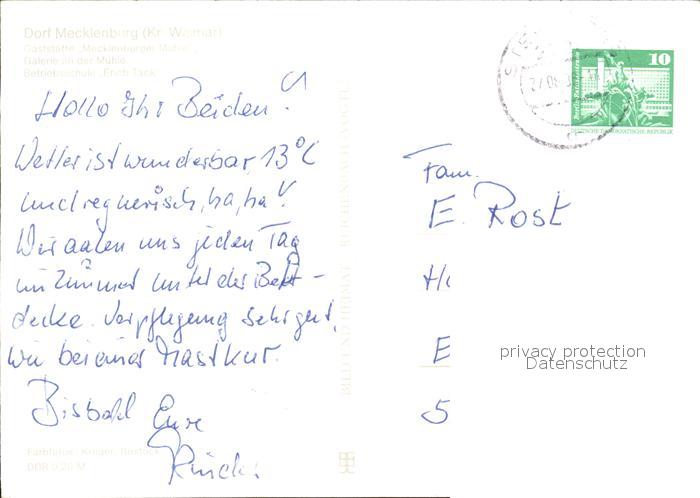 Dorf Mecklenburg (Kr. Wismar)
Gaststätte „Mecklenburger Mühle“,
Galerie an der Mühle,
Betriebsschule „Erich Tack“
Hallo Ihr Beiden!
Wetter ist wunderbar, 13°C
und regnerisch, ha, ha!
Wir aalen uns jeden Tag
im Zimmer unter der Bett-
decke. Verpflegung sehr gut,
wie bei einer Mastkur.
Bisbald Eure
Farbfotos: Krüger, Rostock
DDR 0,20 M
BILD UND HEIMAT REICHENBACH
10
DEUTSCHE DEMOKRATISCHE REPUBLIK
Fam.
E. Rost
H
E
5
privacy protection
Datenschutz